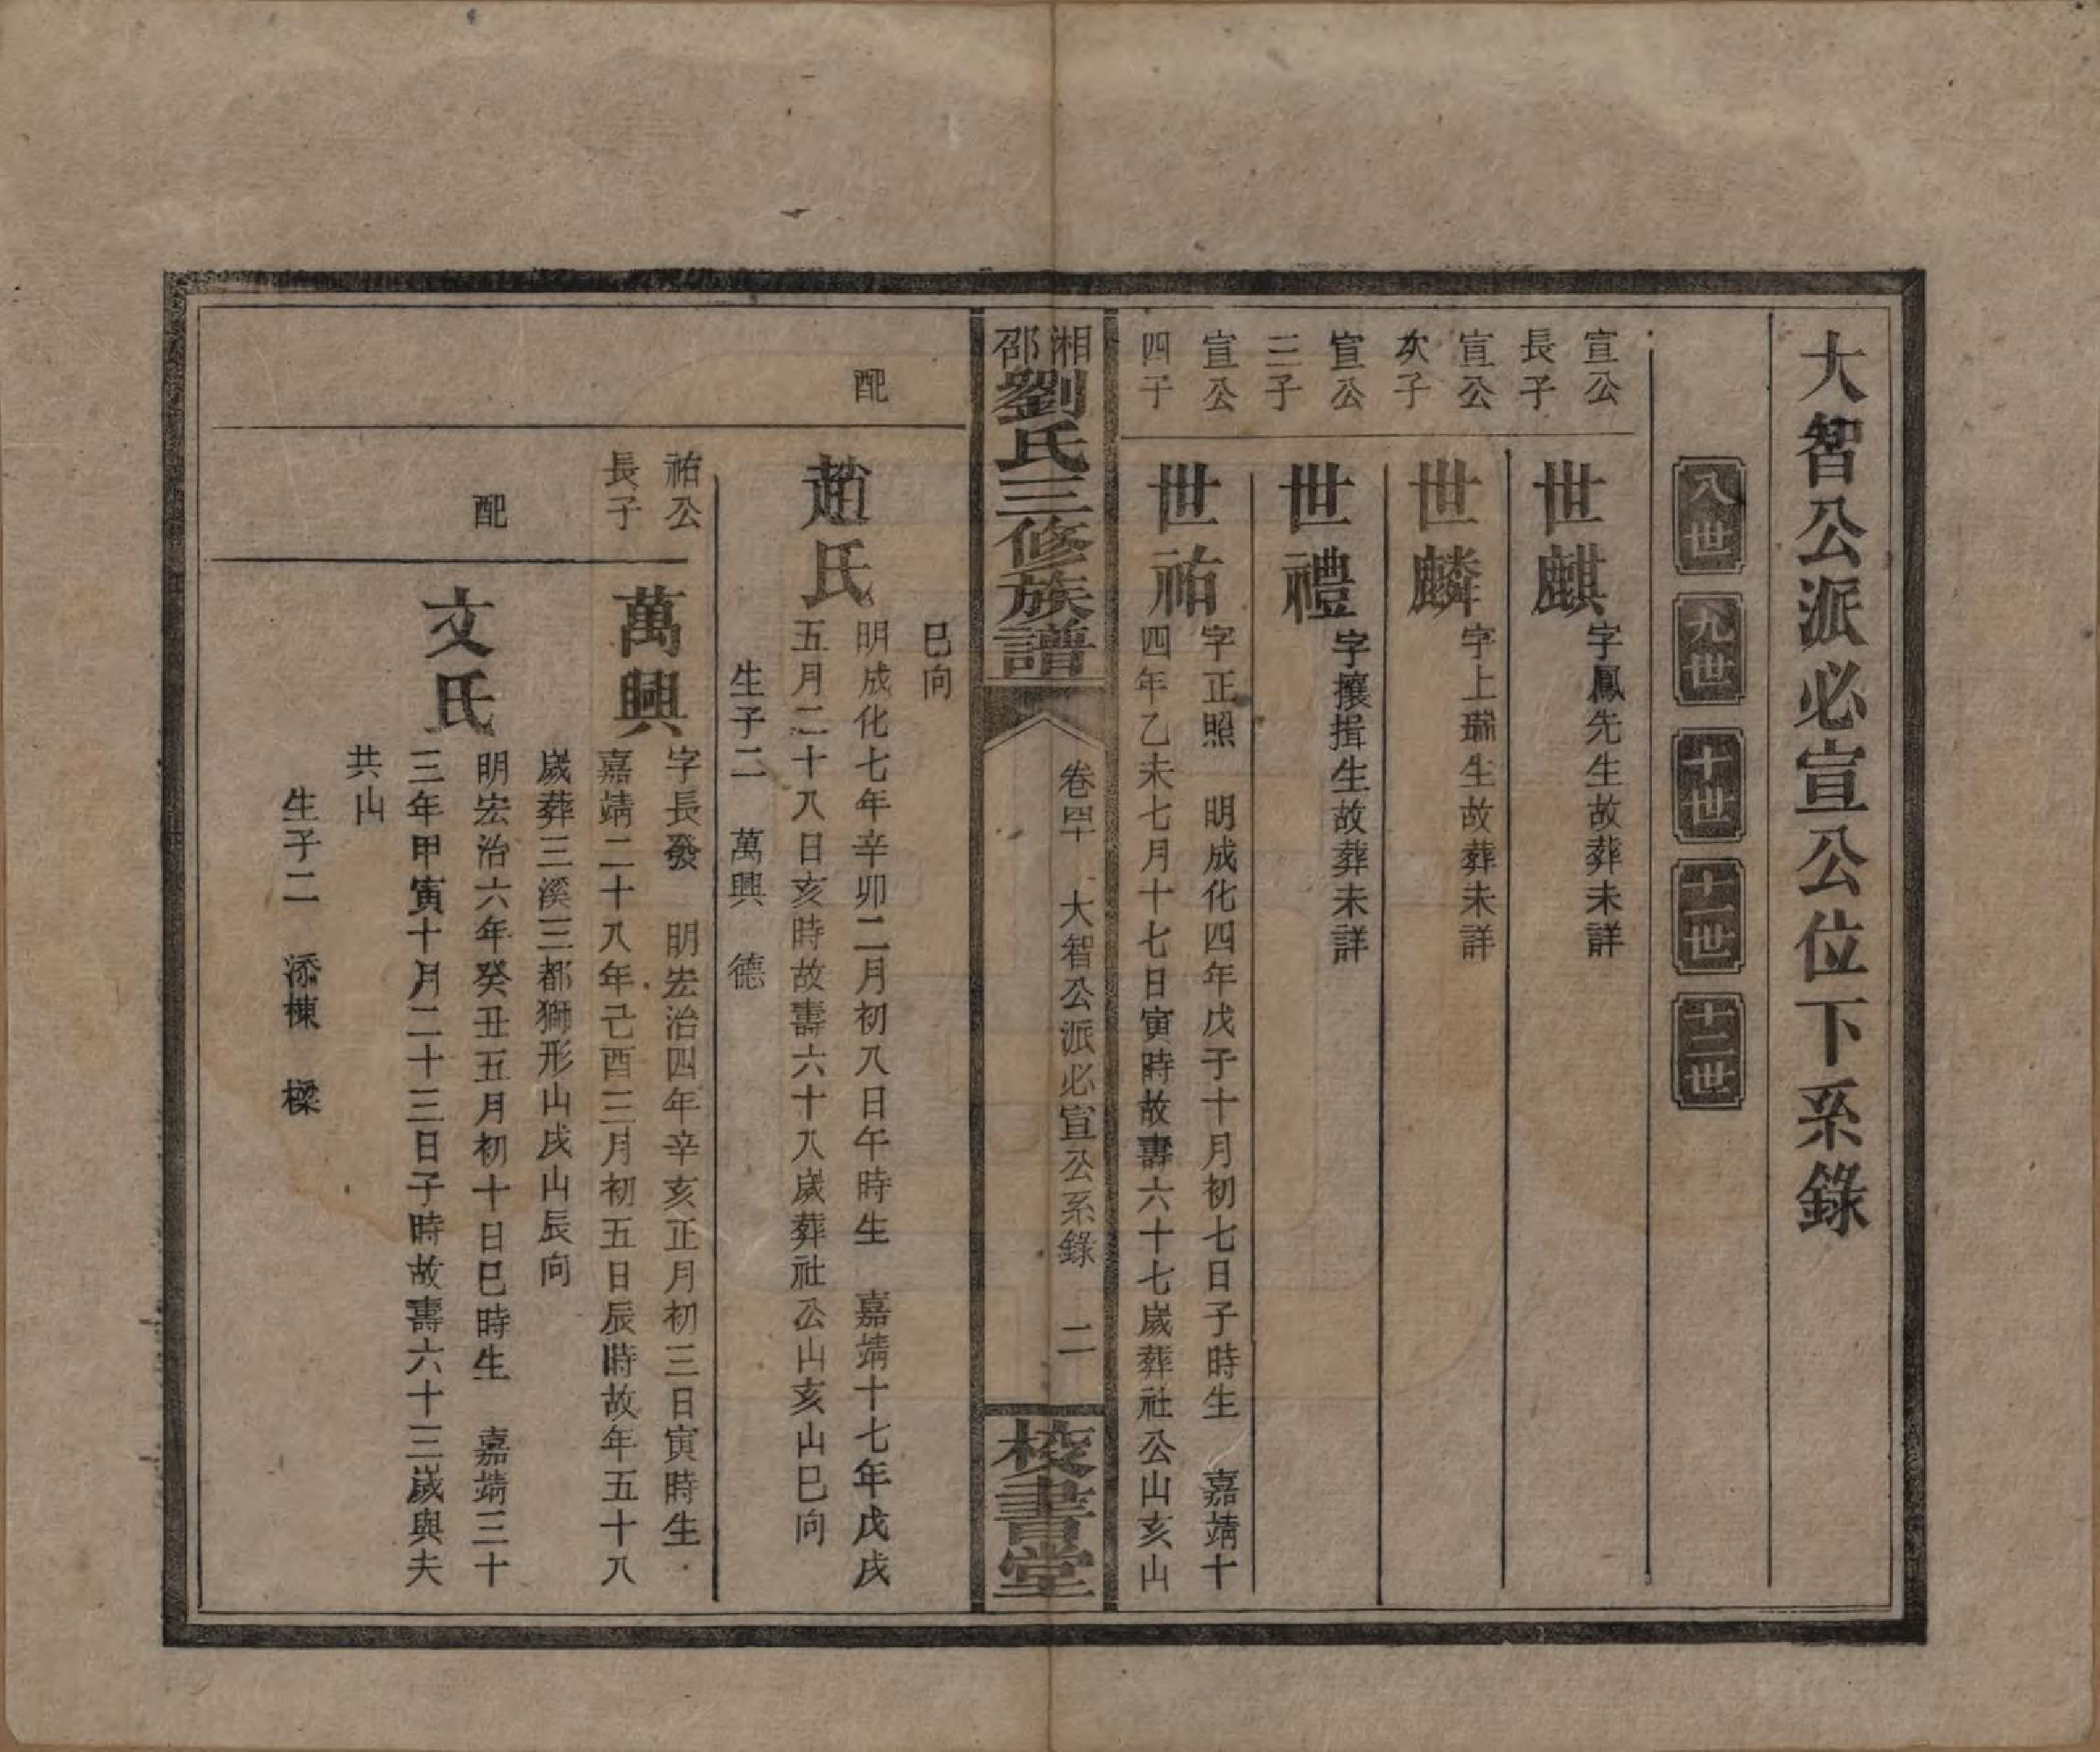 大智公派必宣公位下系錄
八世 九世 十世 十一世 十二世
宣公
長子
世麒
字鳳先生故葬未詳
宣公
次子
世麟
字上瑞生故葬未詳
宣公
三子
世禮
字攘揖生故葬未詳
宣公
四子
世祐
字正照 明成化四年戊子十月初七日子時生 嘉靖十
四年乙未七月十七日寅時故壽六十七歲葬社公山亥山
湘邵劉氏三修族譜
卷四 大智公派必宣公系錄 二
校書堂
巳向
配
趙氏
明成化七年辛卯二月初八日午時生 嘉靖十七年戊戌
五月二十八日亥時故壽六十八歲葬社公山亥山巳向
生子二 萬興 德
祐公
長子
萬興
字長發 明宏治四年辛亥正月初三日寅時生
嘉靖二十八年己酉三月初五日辰時故年五十八
歲葬三溪三都獅形山戌山辰向
配
文氏
明宏治六年癸丑五月初十日巳時生 嘉靖三十
三年甲寅十月二十三日子時故壽六十三歲與夫
共山
生子二 添棟 樑